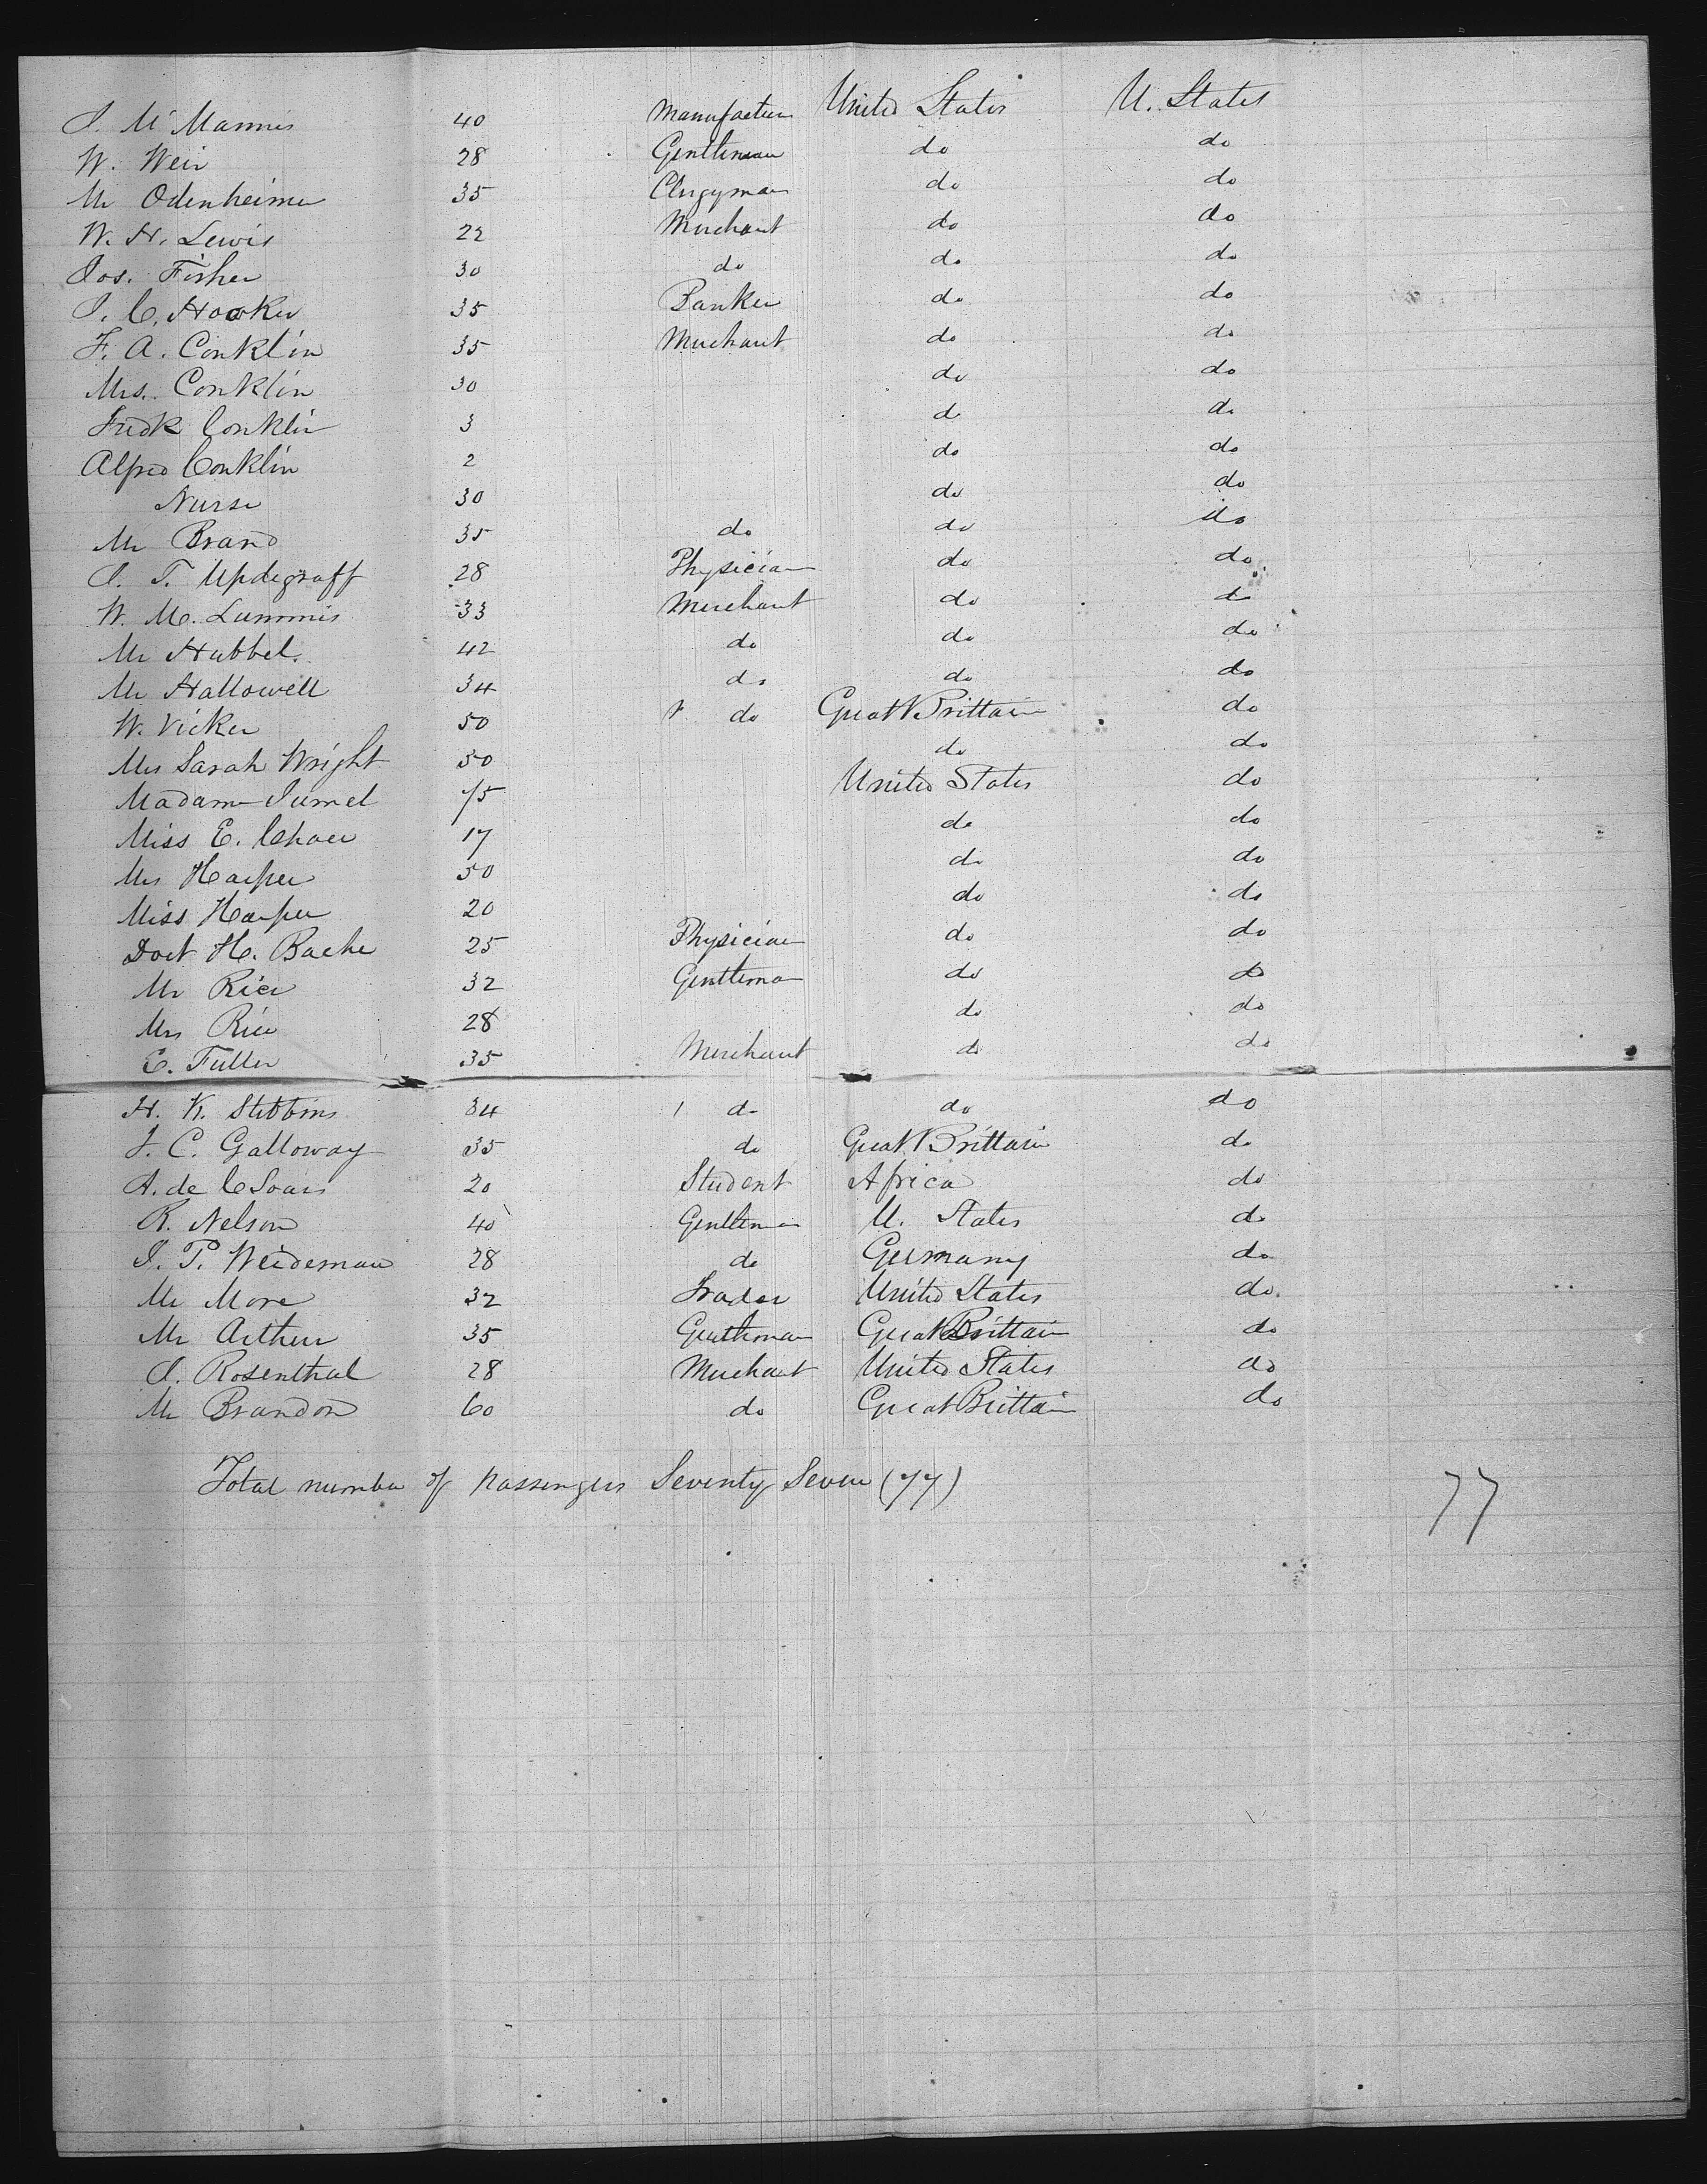 J. McMannis 40 Manufacturer United States U. States
W. Weir 28 Gentleman do do
Mr Odenheimer 35 Clergyman do do
W. H. Lewis 22 Merchant do do
Jos. Fisher 30 do do do
J. C. Hooker 35 Banker do do
F. A. Conklin 35 Merchant do do
Mrs. Conklin 30 do do
Fredk Conklin 3 do do
Alfred Conklin 2 do do
Nurse 30 do do
Mr Brand 35 do do do
J. T. Updegraff 28 Physician do do
W. M. Lummis 33 Merchant do do
Mr Hubbel. 42 do do do
Mr Hallowell 34 do do do
W. Vicker 50 do Great Brittain do
Mrs Sarah Wright 30 do do
Madame Jumel 75 United States do
Miss E. 17 do do
Mrs Harper 50 do do
Miss Harper 20 do do
Doct H. Bache 25 Physician do do
Mr Rice 32 Gentleman do do
Mrs Rice 28 do do
E. Fuller 35 Merchant do do
H. K. Stebbins 34 do do do
J. C. Galloway 35 do Great Brittain do
A. de 20 Student Africa do
R. Nelson 40 Gentleman U. States do
J. P. Weideman 28 do Germany do
Mr More 32 Trader United States do
Mr Arthur 35 Gentleman Great Brittain do
J. Rosenthal 28 Merchant United States do
Mr Brandon 60 do Great Brittain do
Total number of passengers Seventy Seven (77) 77